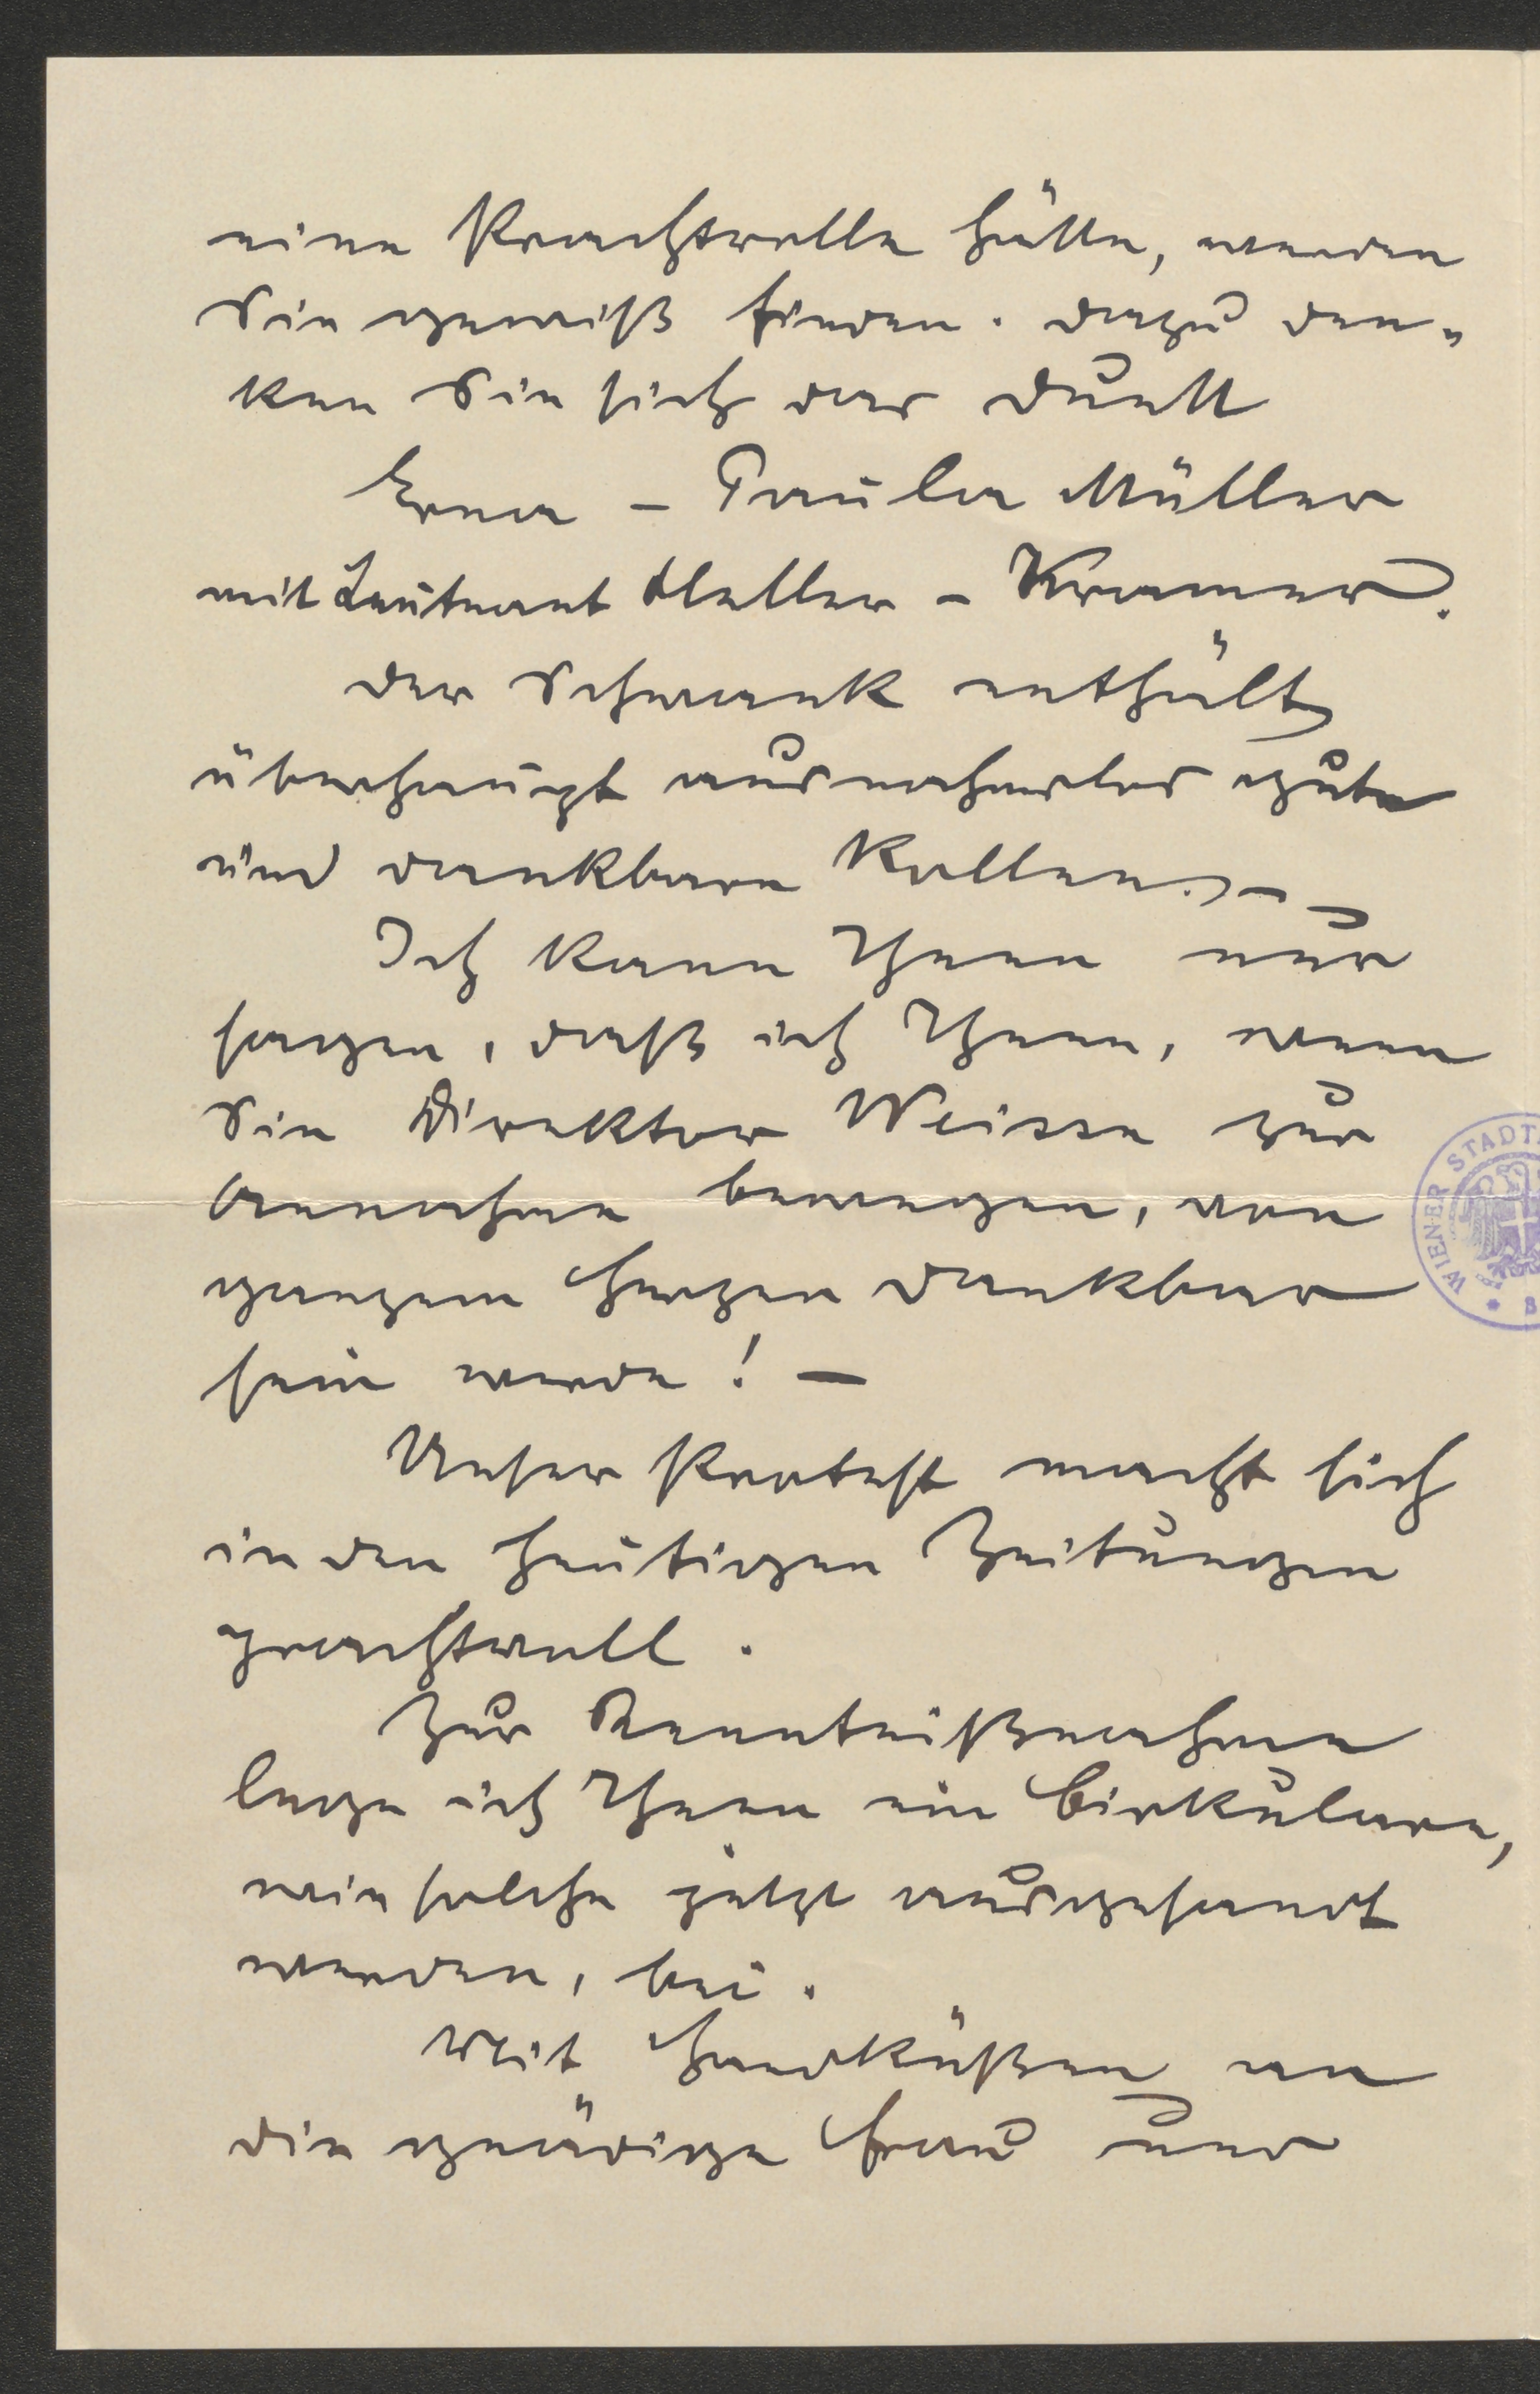 eine Prachtrolle hätte, werden
Sie gewiß finden. Dazu den-
ken Sie sich das Duett
Erna – Paula Müller
mit Leutnant Heller – Kramer.
Der Schwank enthält
überhaupt ausnahmslos gute
und dankbare Rollen. –
Ich kann Ihnen nur
sagen, daß ich Ihnen, wenn
Sie Direktor Weisse zur
Annahme bewegen, von
ganzem Herzen dankbar
sein werde! –
Unser Protest macht sich
in den heutigen Zeitungen
prachtvoll.
Zur Kenntnißnahme
lege ich Ihnen ein Cirkulare,
wie solche jetzt ausgesandt
werden, bei.
Mit Handküßen an
die gnädige Frau und
WIENER STADT